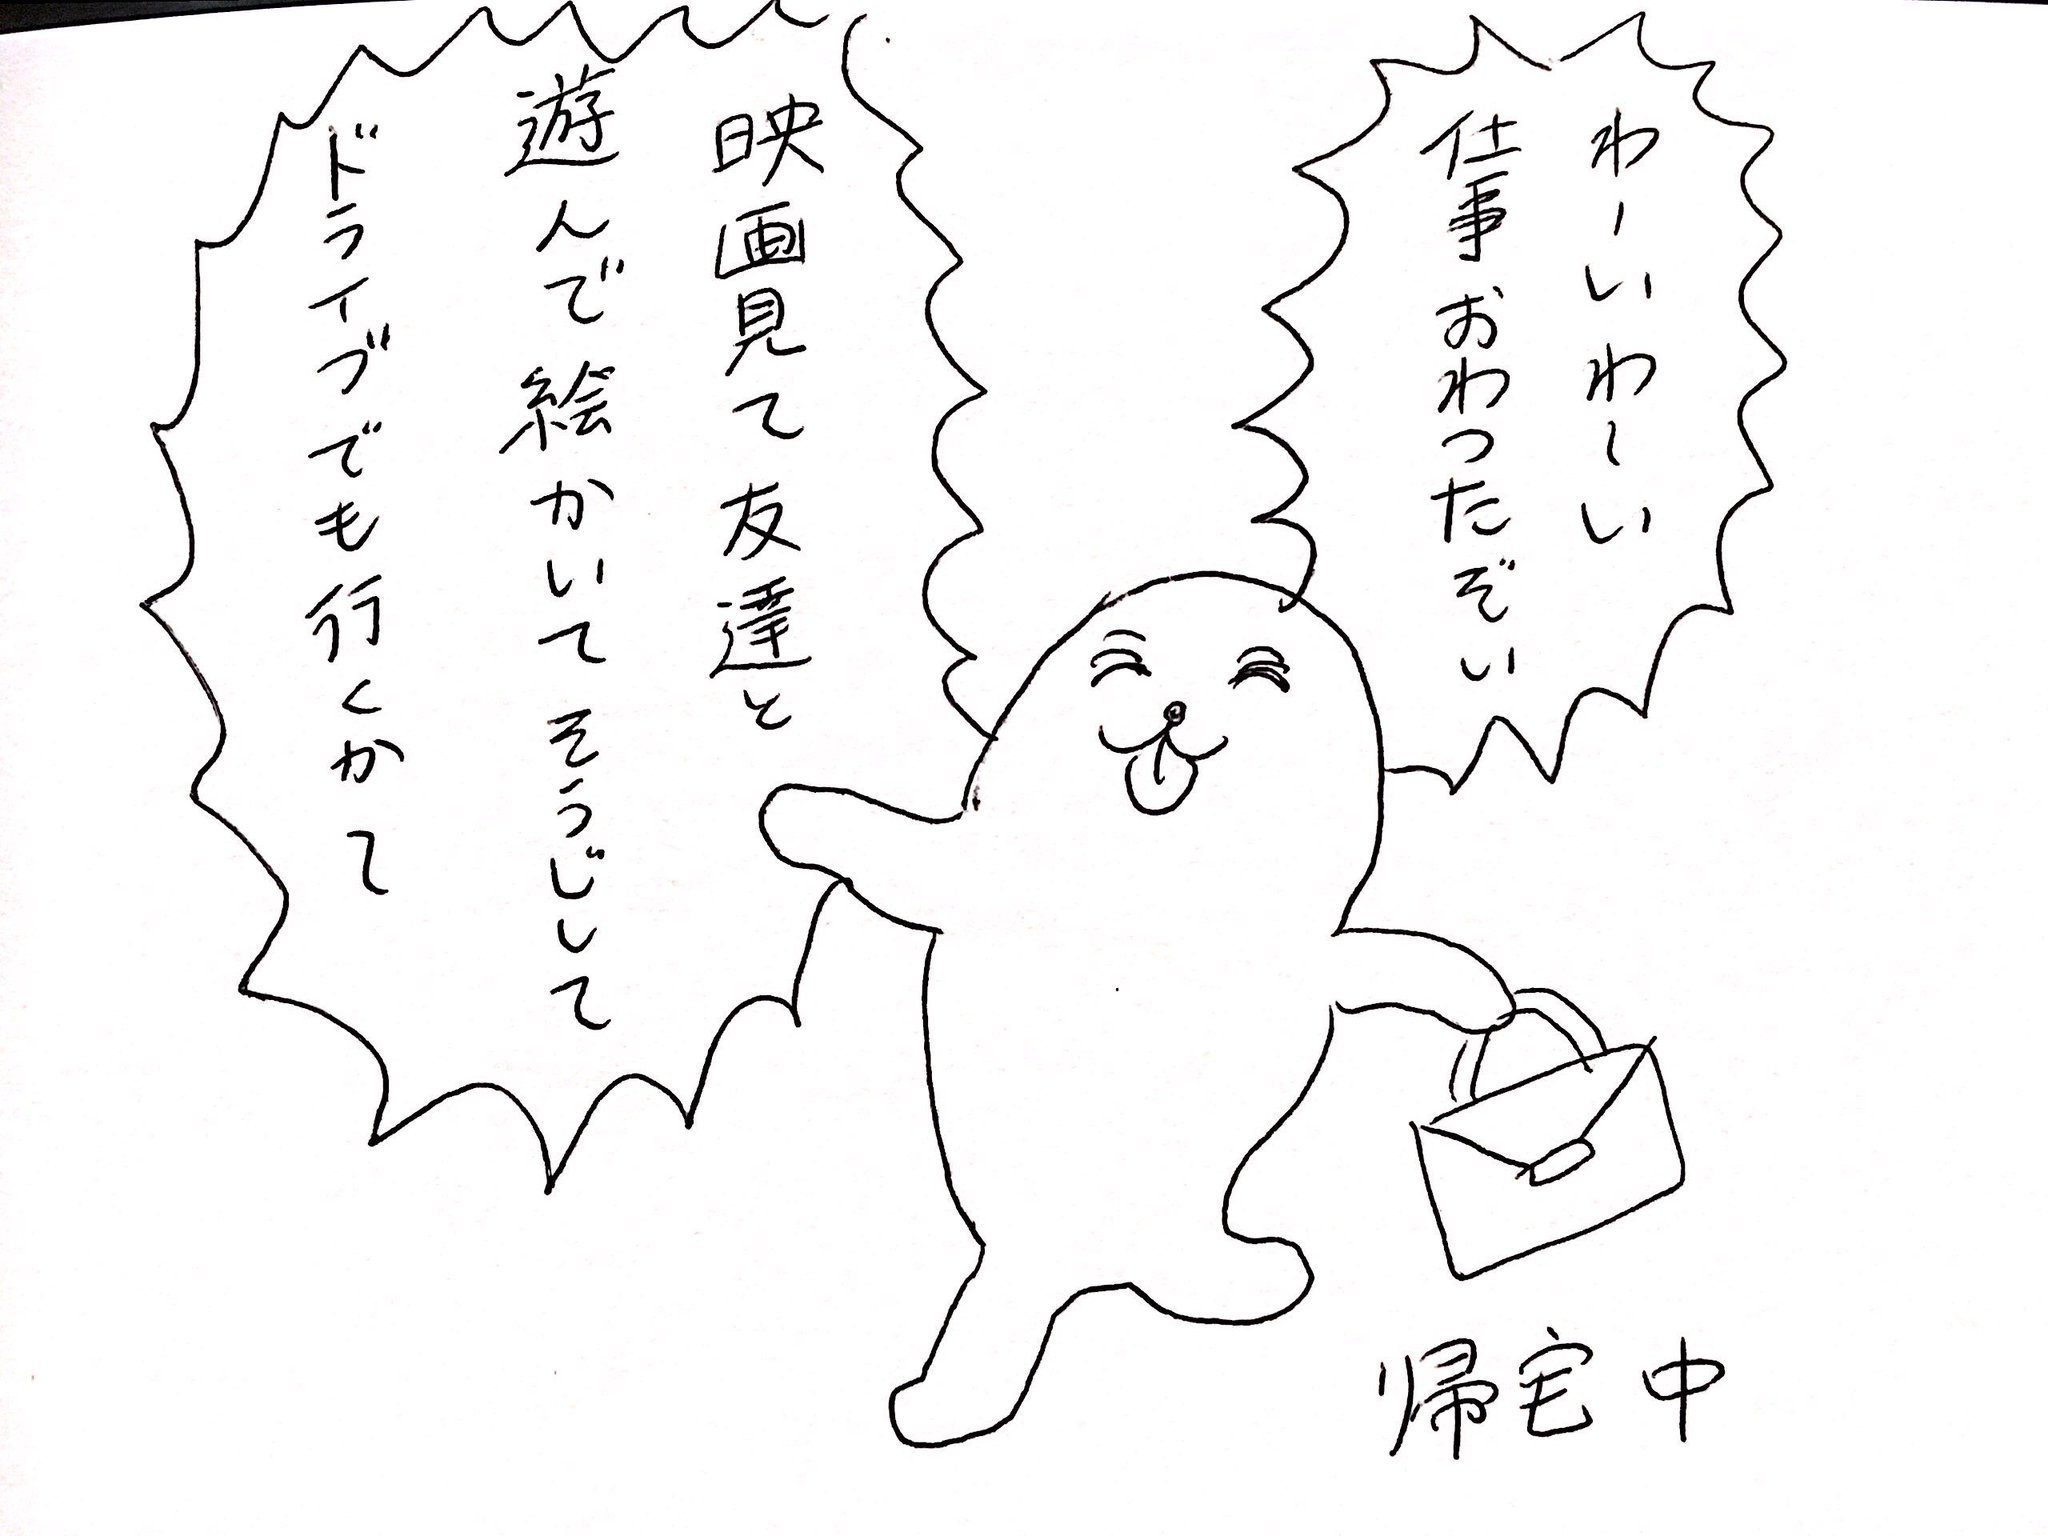 わーいわーい
仕事おわったぞい
映画見て友達と
遊んで絵かいてそうじして
ドライブでも行くかて
帰宅中